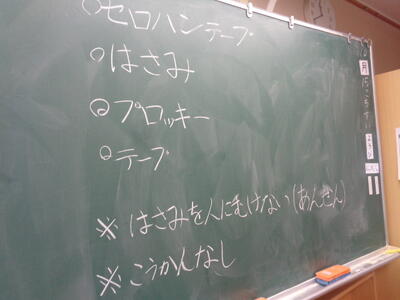 ○セロハンテープ
○はさみ
◎プロッキー
○テープ
※はさみを人にむけない(あんぜん)
※こうかんなし
月